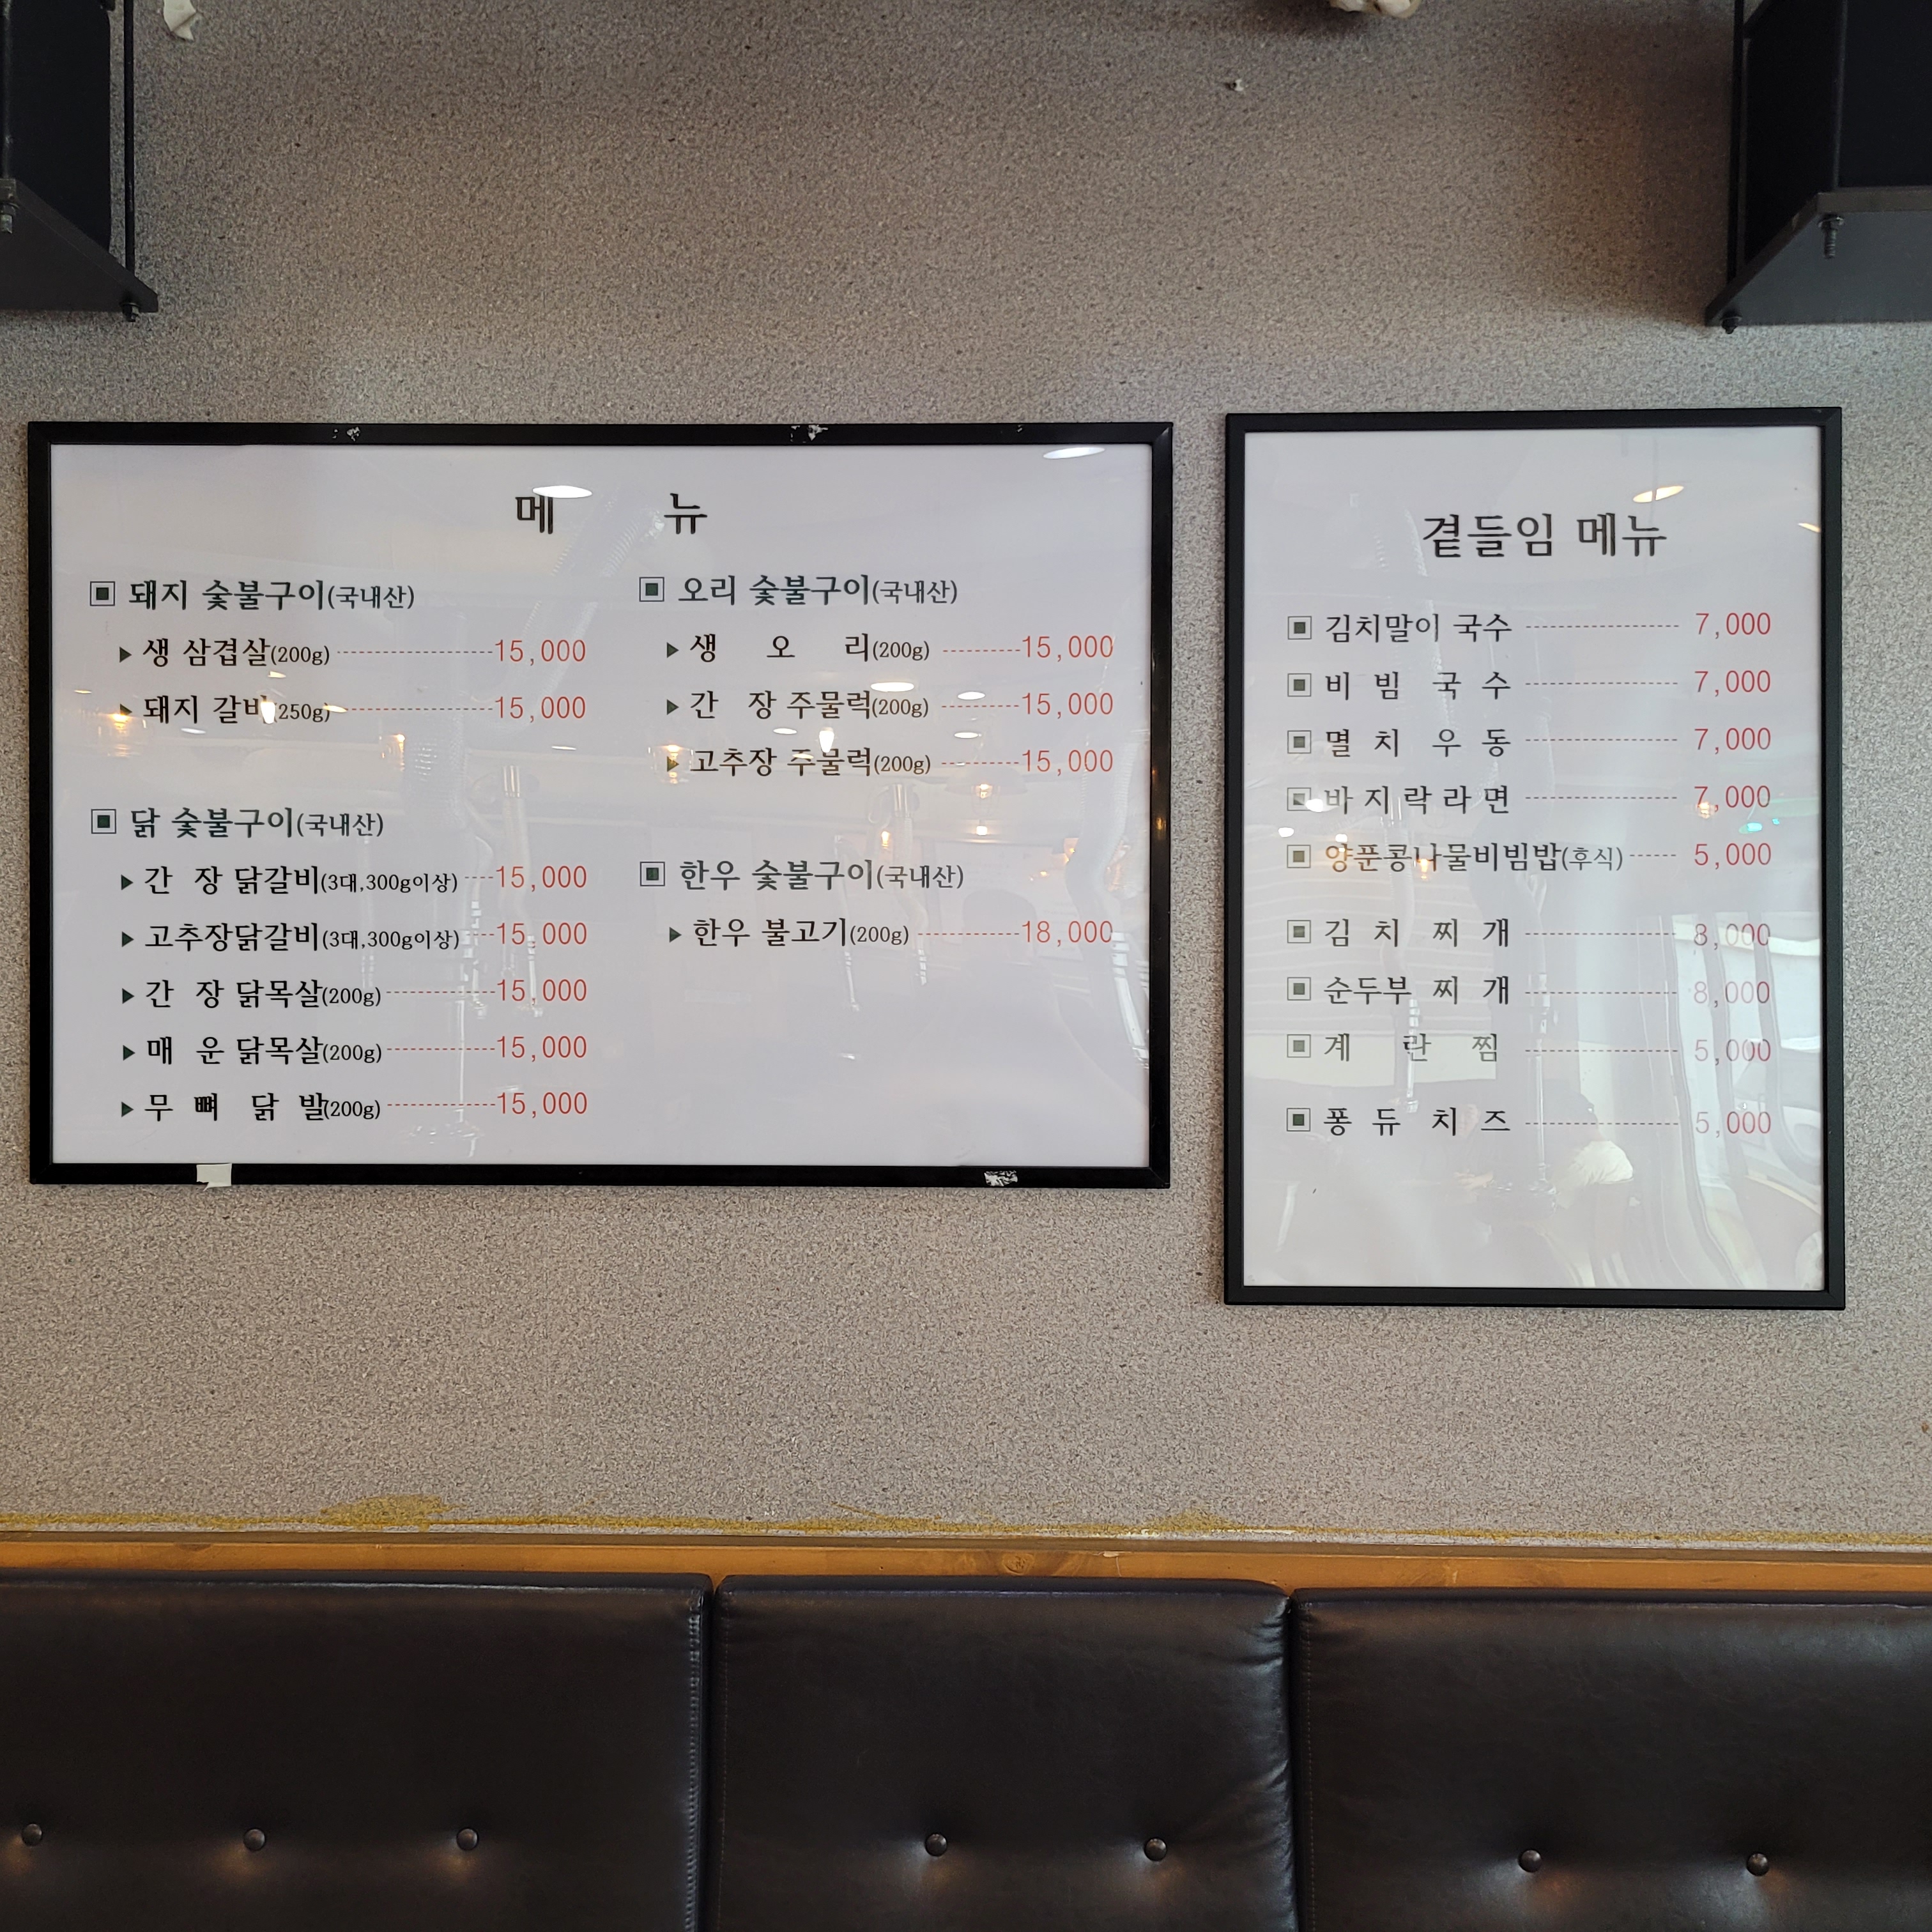 메 뉴
▣ 돼지 숯불구이(국내산)
▶ 생 삼겹살(200g) 15,000
▶ 돼지 갈비(250g) 15,000
▣ 닭 숯불구이(국내산)
▶ 간 장 닭갈비(3대,300g이상) 15,000
▶ 고추장닭갈비(3대,300g이상) 15,000
▶ 간 장 닭목살(200g) 15,000
▶ 매 운 닭목살(200g) 15,000
▶ 무 뼈 닭 발(200g) 15,000
▣ 오리 숯불구이(국내산)
▶ 생 오 리(200g) 15,000
▶ 간 장 주물럭(200g) 15,000
▶ 고추장 주물럭(200g) 15,000
▣ 한우 숯불구이(국내산)
▶ 한우 불고기(200g) 18,000
곁들임 메뉴
▣ 김치말이 국수 7,000
▣ 비 빔 국 수 7,000
▣ 멸 치 우 동 7,000
▣ 바 지 락 라 면 7,000
▣ 양푼콩나물비빔밥(후식) 5,000
▣ 김 치 찌 개 8,000
▣ 순두부 찌 개 8,000
▣ 계 란 찜 5,000
▣ 퐁 듀 치 즈 5,000